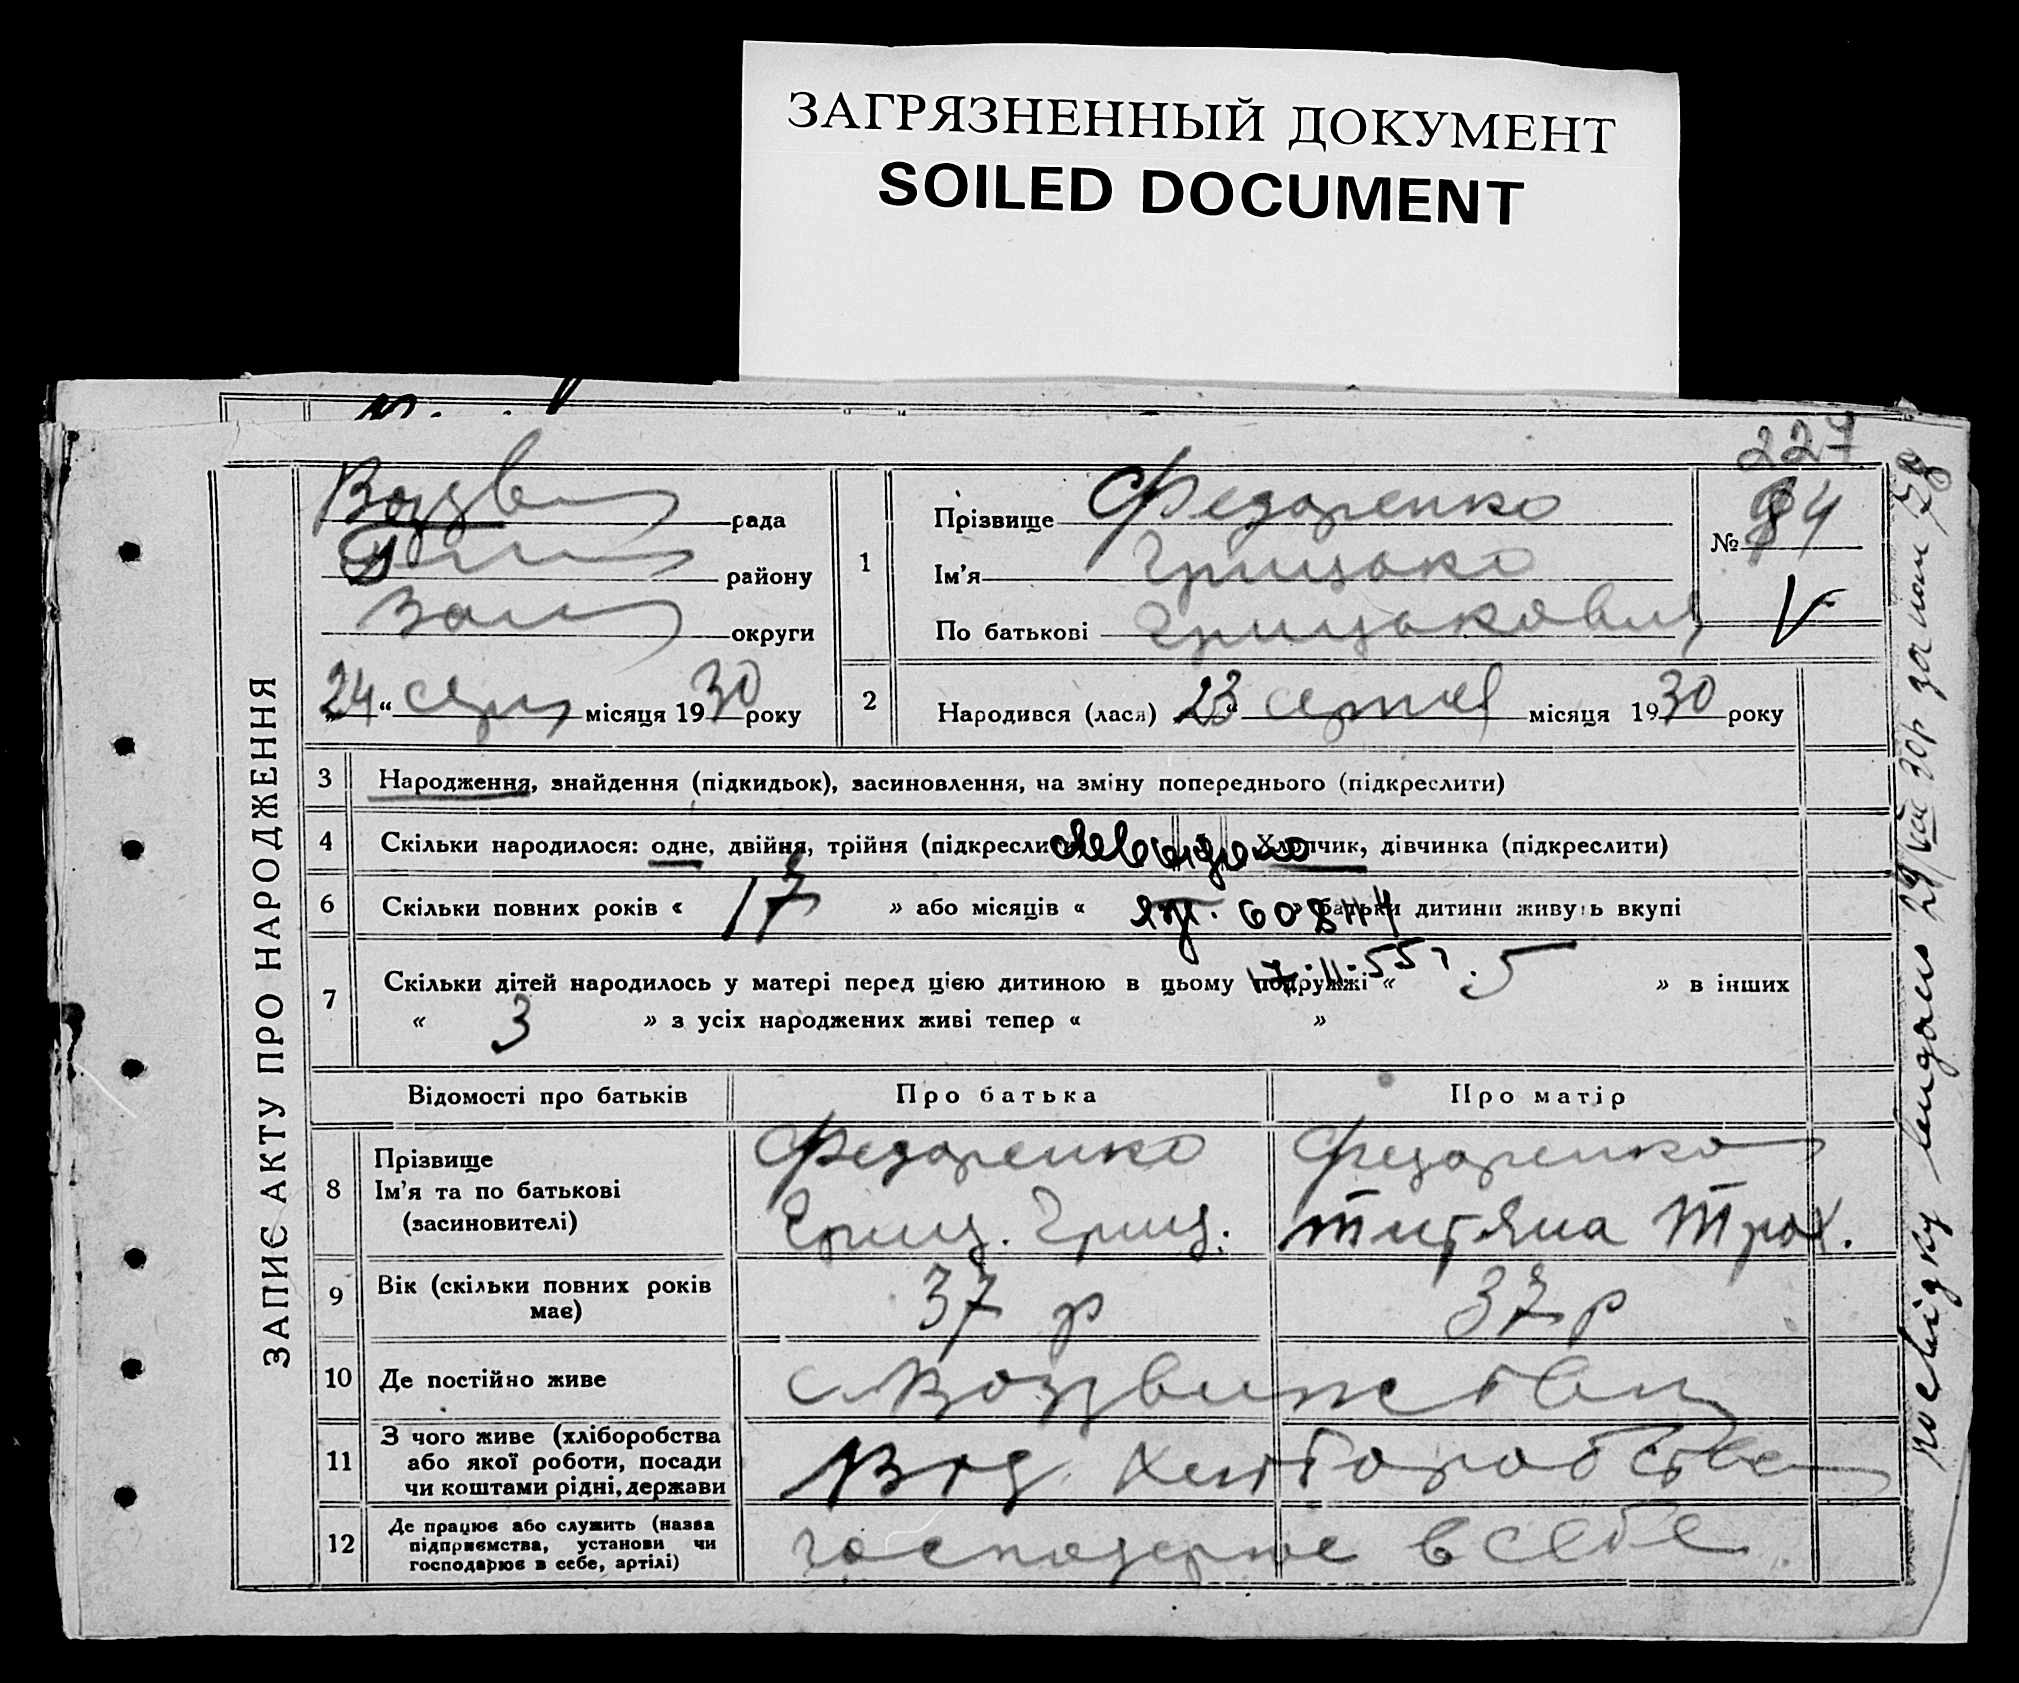 ЗАГРЯЗНЕННЫЙ ДОКУМЕНТ
SOILED DOCUMENT
227
ЗАПИС АКТУ ПРО НАРОДЖЕННЯ
Воздв рада
району
округи
24 “ серп місяця 1930 року
1
Прізвище Федоренко
Ім’я Грицько
По батькові Грицькович
№ 84
V
2 Народився (лася) 23 серпня місяця 1930 року
3 Народження, знайдення (підкидьок), засиновлення, на зміну попереднього (підкреслити)
4 Скільки народилося: одне, двійня, трійня (підкреслити) Хлопчик, дівчинка (підкреслити)
6 Скільки повних років « 17 » або місяців « » батьки дитини живуть вкупі
7 Скільки дітей народилось у матері перед цією дитиною в цьому подружжі « 5 » в інших
« 3 » з усіх народжених живі тепер « »
17.II.55
Відомості про батьків Про батька Про матір
8 Прізвище
Ім’я та по батькові
(засиновителі)
Федоренко
Гриц. Гриц.
Федоренко
Титяна Трох.
9 Вік (скільки повних років має) 37 р 37 р
10 Де постійно живе с Воздвижинськ
11 З чого живе (хліборобства
або якої роботи, посади
чи коштами рідні, держави
Від хліборобства
12 Де працює або служить (назва
підприємства, установи чи
господарює в себе, артілі)
господарює в себе
посвідку видано 29/VIII 30р за № 78